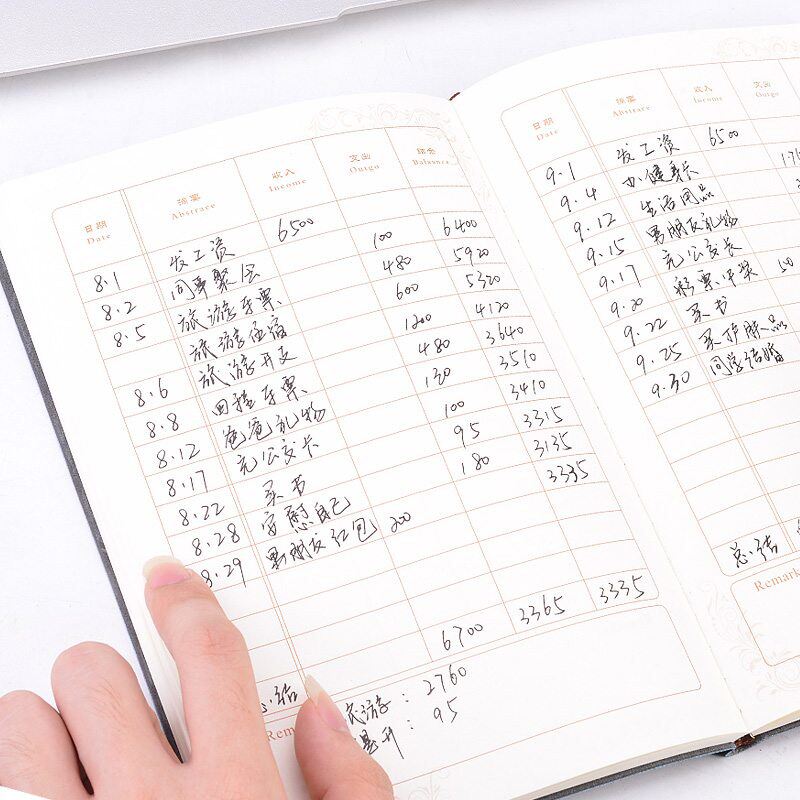 日期 摘要 收入 支出 结余
Date Abstrace Income Outgo Balance
8.1 发工资 6500
8.2 同事聚会 100 6400
8.5 旅游车票 480 5920
旅游住宿 600 5320
8.6 旅游开支 1200 4120
8.8 回程车票 480 3640
8.12 爸爸礼物 130 3510
8.17 充公交卡 100 3410
8.22 买书 95 3315
8.28 安慰自己 180 3135
8.29 男朋友红包 200 3335
总结 6700 3365 3335
Remar
旅游: 2760
提升: 95
日期 摘要 收入 支出
Date Abstrace Income Outgo
9.1 发工资 6500
9.4 办健身卡 175
9.12 生活用品
9.15 男朋友礼物
9.17 充公交卡
9.20 彩票中奖 50
9.22 买书
9.25 买护肤品
9.30 同学结婚
总结
Remark